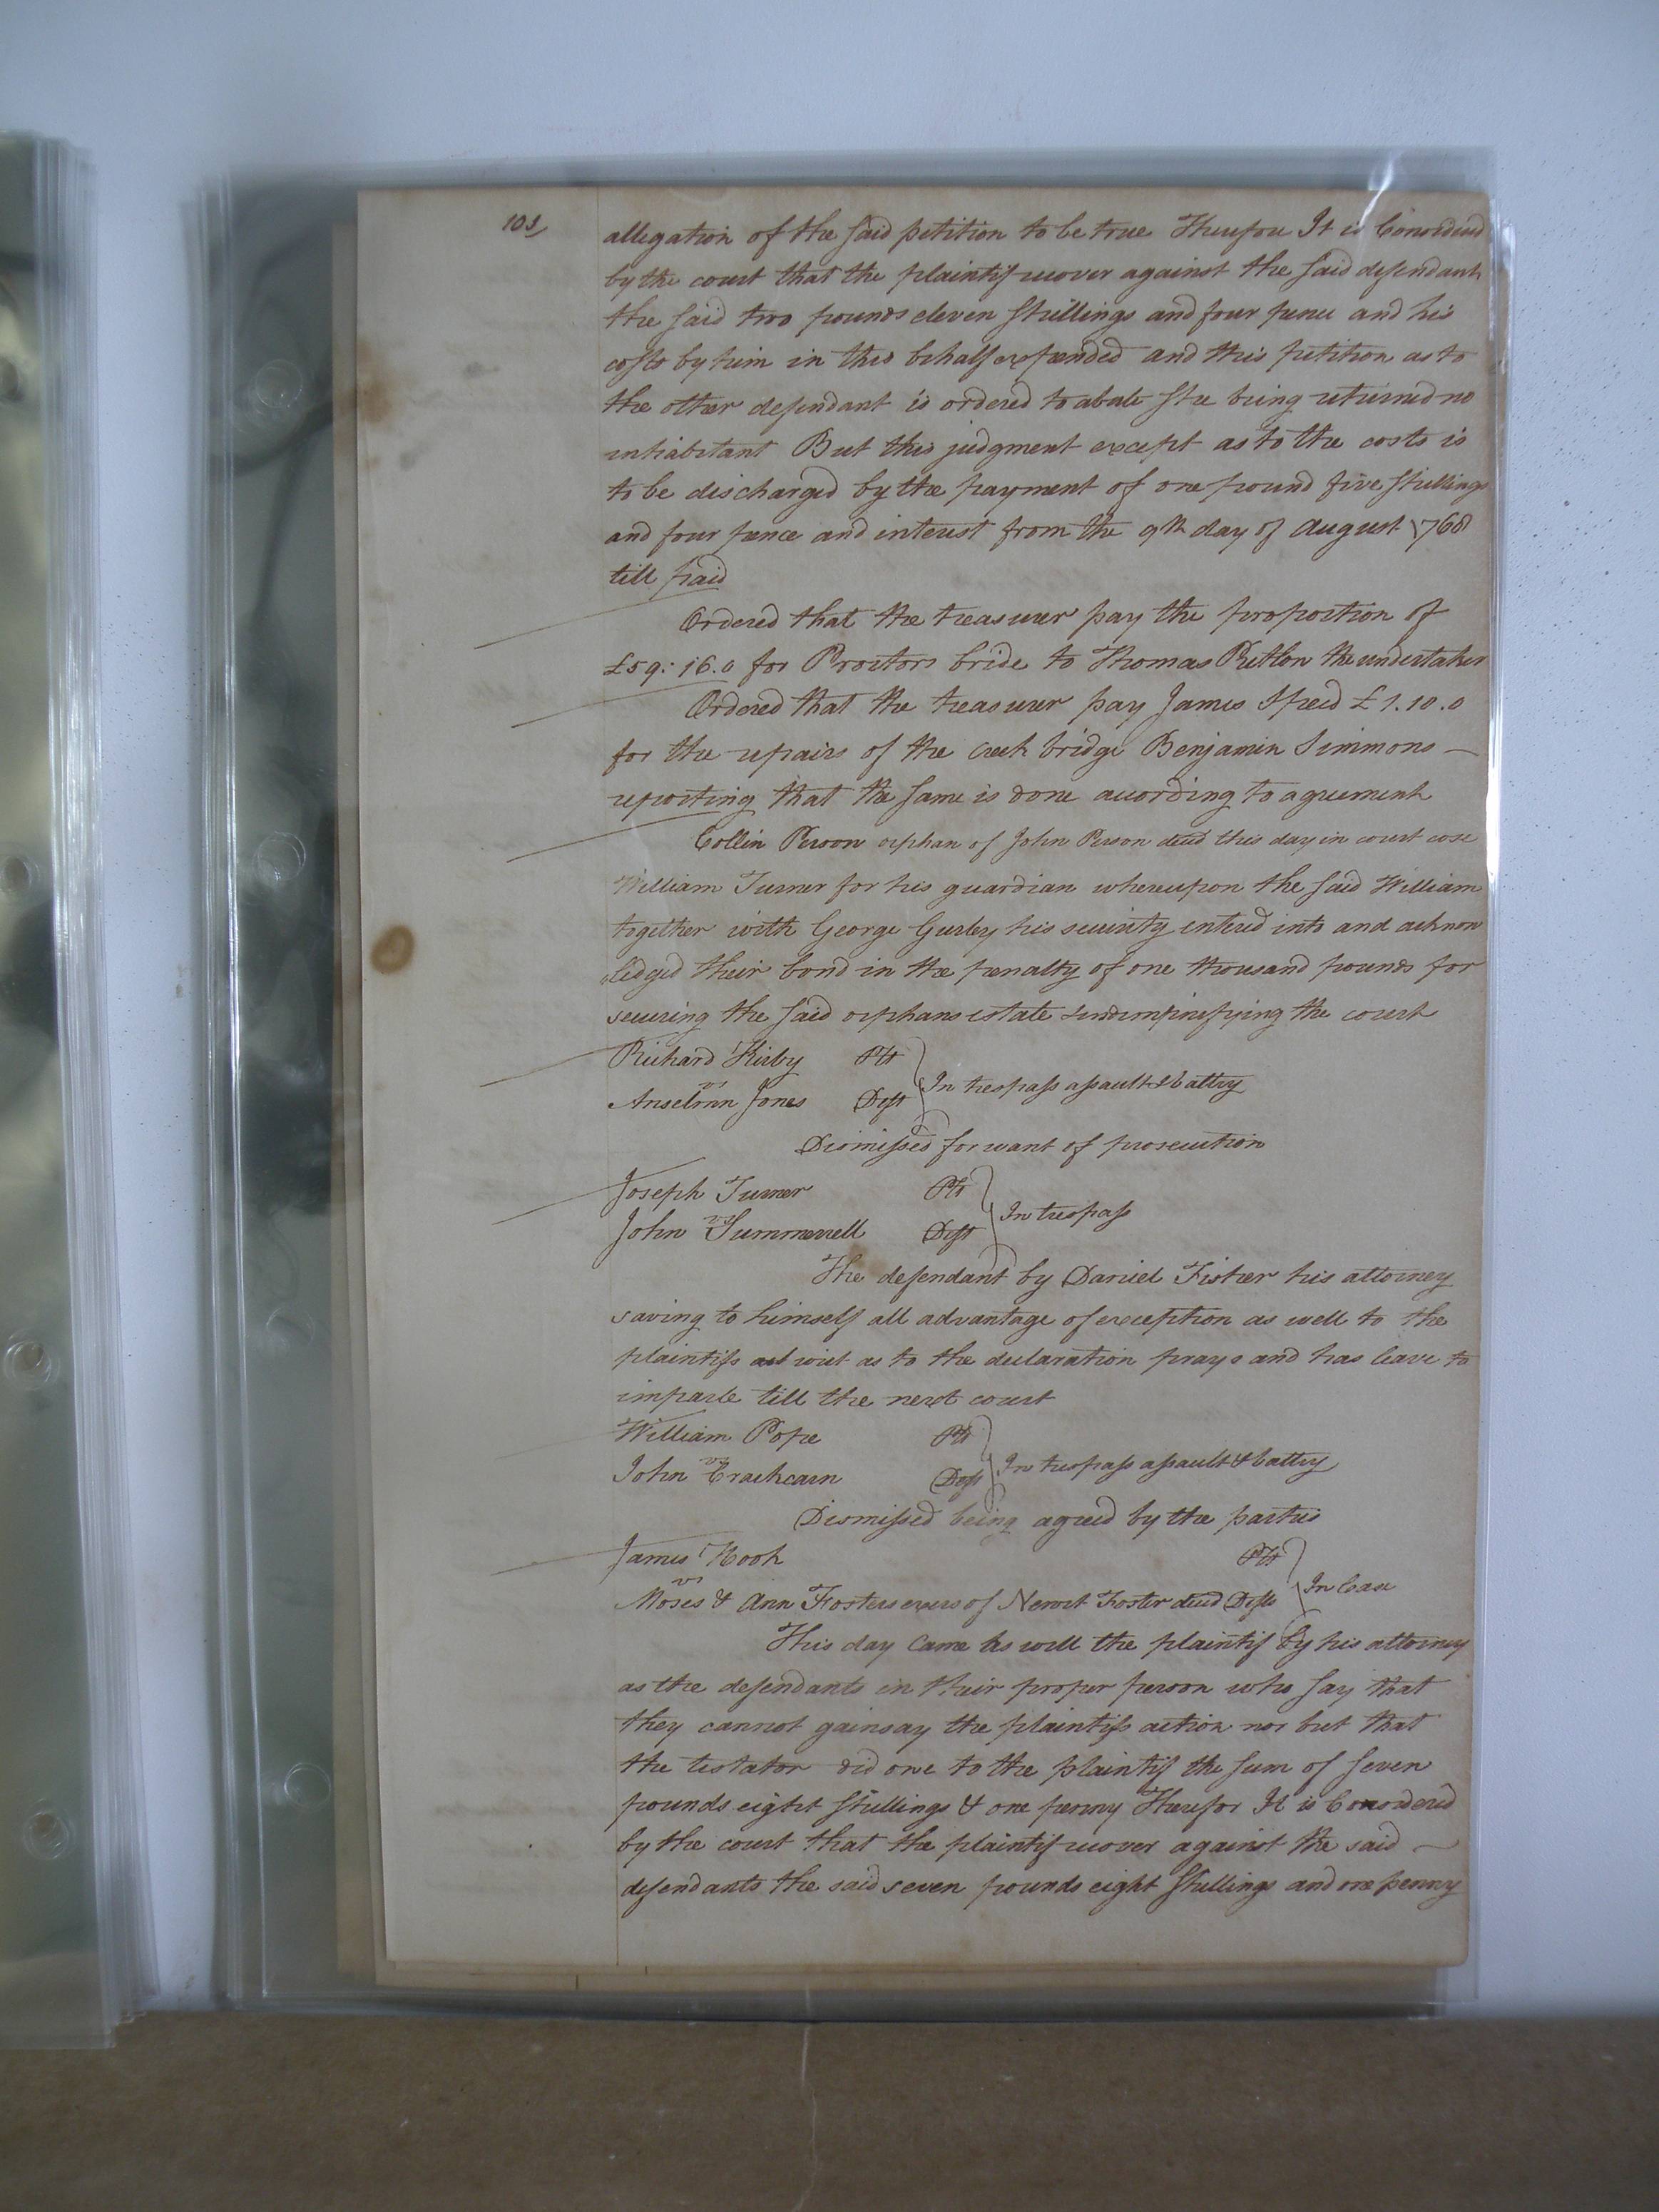 103
allegation of the said petition to be true Therefore It is Considered
by the court that the plaintif recover against the said defendant
the said two pounds eleven shillings and four pence and his
costs by him in this behalf expended and this petition as to
the other defendant is ordered to abate she being returned no
inhabitant But this judgment except as to the costs is
to be discharged by the payment of one pound five shillings
and four pence and interest from the 9th day of August 1768
till paid
Ordered that the treasurer pay the proportion of
£59: 16.0 for Proctors bride to Thomas the undertaker
Ordered that the treasurer pay James Speed £1.10.0
for the repairs of the creek bridge Benjamin Simmons —
reporting that the same is done according to agreement
Collin Person orphan of John Person decd this day in court cose
William Turner for his guardian whereupon the said William
together with George Gurley his security entered into and acknow
ledged their bond in the penalty of one thousand pounds for
securing the said orphans estate & the court
Richard Kirby Plt
vs In trespass assault & battry
Anselmn Jones Deft
Dismissed for want of prosecution
Joseph Turner Plt
vs In trespass
John Summerell Deft
The defendant by Daniel Fisher his attorney
saving to himself all advantage of exception as well to the
plaintifs writ as to the declaration prays and has leave to
imparle till the next court
William Pope Plt
vs In trespass assault & battry
John Crathcarn Deft
Dismissed being agreed by the parties
James Hook Plt
vs In Case
Moses & Ann Fosters exers of Newit Foster decd Defts
This day Came As well the plaintif by his attorney
as the defendants in their proper person who say that
they cannot gainsay the plaintifs action nor but that
the testator did owe to the plaintif the sum of seven
pounds eight shillings & one penny Therefor It is Considered
by the court that the plaintif recover against the said —
defendants the said seven pounds eight shillings and one penny